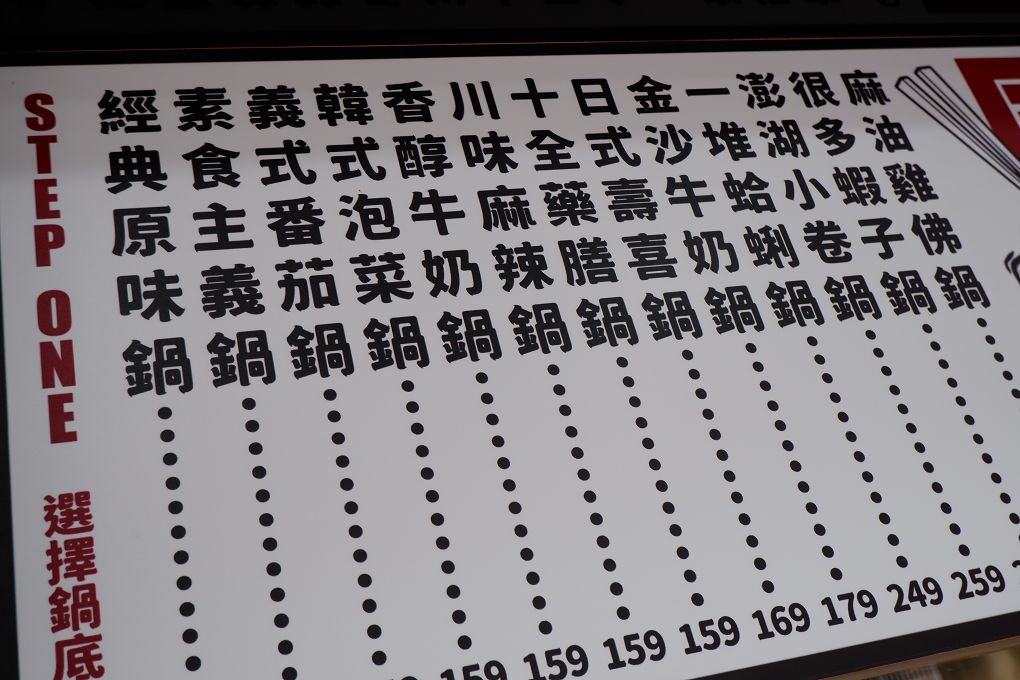 STEP ONE 選擇鍋底
經典原味鍋
素食主義鍋
義式番茄鍋
韓式泡菜鍋 159
香醇牛奶鍋 159
川味麻辣鍋 159
十全藥膳鍋 159
日式壽喜鍋 169
金沙牛奶鍋 179
一堆蛤蜊鍋 249
澎湖小卷鍋 259
很多蝦子鍋
麻油雞佛鍋